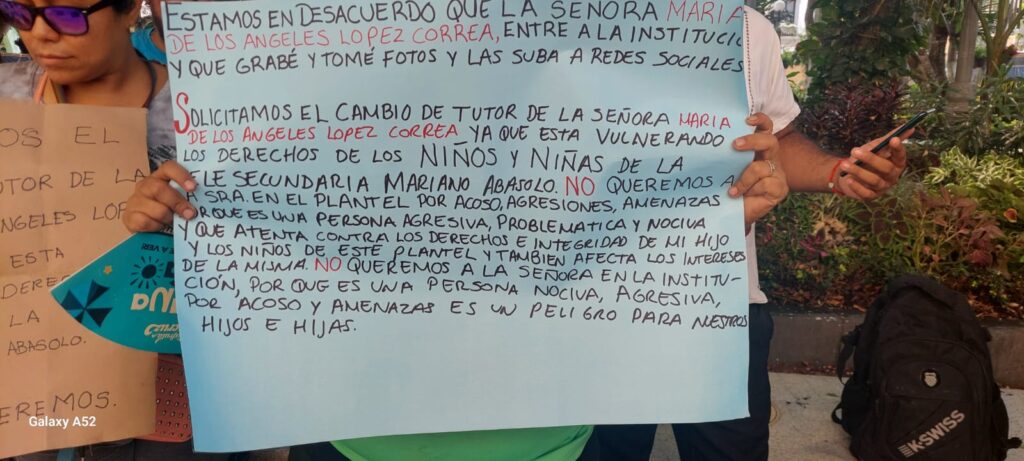 ESTAMOS EN DESACUERDO QUE LA SEÑORA MARIA
DE LOS ANGELES LOPEZ CORREA, ENTRE A LA INSTITUCIÓ
Y QUE GRABÉ Y TOMÉ FOTOS Y LAS SUBA A REDES SOCIALES
SOLICITAMOS EL CAMBIO DE TUTOR DE LA SEÑORA MARIA
DE LOS ANGELES LOPEZ CORREA YA QUE ESTA VULNERANDO
LOS DERECHOS DE LOS NIÑOS Y NIÑAS DE LA
TELE SECUNDARIA MARIANO ABASOLO. NO QUEREMOS A
SRA. EN EL PLANTEL POR ACOSO, AGRESIONES, AMENAZAS
PORQUE ES UNA PERSONA AGRESIVA, PROBLEMATICA Y NOCIVA
Y QUE ATENTA CONTRA LOS DERECHOS E INTEGRIDAD DE MI HIJO
Y LOS NIÑOS DE ESTE PLANTEL Y TAMBIEN AFECTA LOS INTERESES
DE LA MISMA. NO QUEREMOS A LA SEÑORA EN LA INSTITU-
CIÓN, POR QUE ES UNA PERSONA NOCIVA, AGRESIVA,
POR ACOSO Y AMENAZAS ES UN PELIGRO PARA NUESTROS
HIJOS E HIJAS.
OS EL
TOR DE LA
NGELES LOP
ESTA
DERE
LA
ABASOLO.
EREMOS.
A VER!
cruz
K·SWISS
Galaxy A52